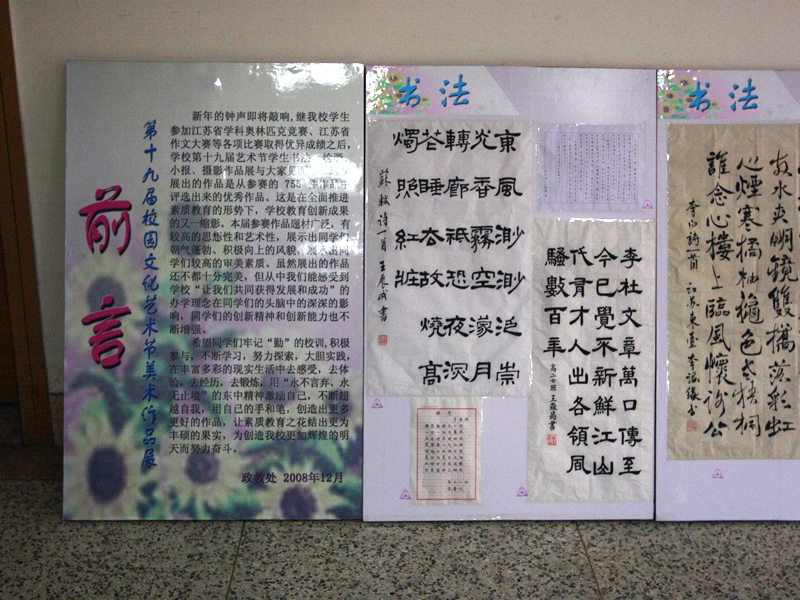 前言
第十九届校园文化艺术节美术作品展
新年的钟声即将敲响,继我校学生
参加江苏省学科奥林匹克竞赛、江苏省
作文大赛等各项比赛取得优异成绩之后,
学校第十九届艺术节学生书法、绘画、
小报、摄影作品展与大家见
展出的作品是从参赛的 755 件作品中
评选出来的优秀作品。这是在全面推进
素质教育的形势下,学校教育创新成果
的又一缩影。本届参赛作品题材广泛,有
较高的思想性和艺术性,展示出同学们
朝气蓬勃、积极向上的风貌,展示出同
学们较高的审美素质。虽然展出的作品
还不都十分完美,但从中我们能感受到
学校“让我们共同获得发展和成功”的
办学理念在同学们的头脑中的深深的影
响,同学们的创新精神和创新能力也不
断增强。
希望同学们牢记“勤”的校训,积极
参与,不断学习,努力探索,大胆实践,
在丰富多彩的现实生活中去感受,去体
验,去经历,去锻炼,用“水不言弃、永
无止境”的东中精神激励自己,不断超
越自我,用自己的手和笔,创造出更多
更好的作品,让素质教育之花结出更为
丰硕的果实,为创造我校更加辉煌的明
天而努力奋斗。
政教处 2008年12月
书法
東風渺渺泛崇
光香霧空濛月
轉廊祇恐夜深
花睡去故燒高
燭照紅妝
蘇軾詩一首
李杜文章萬口傳至
今已覺不新鮮江山
代有才人出各領風
騷數百年
书法
水夾明鏡雙橋落彩虹
人煙寒橘柚秋色老梧桐
誰念北樓上臨風懷謝公
李白詩一首 江苏東臺